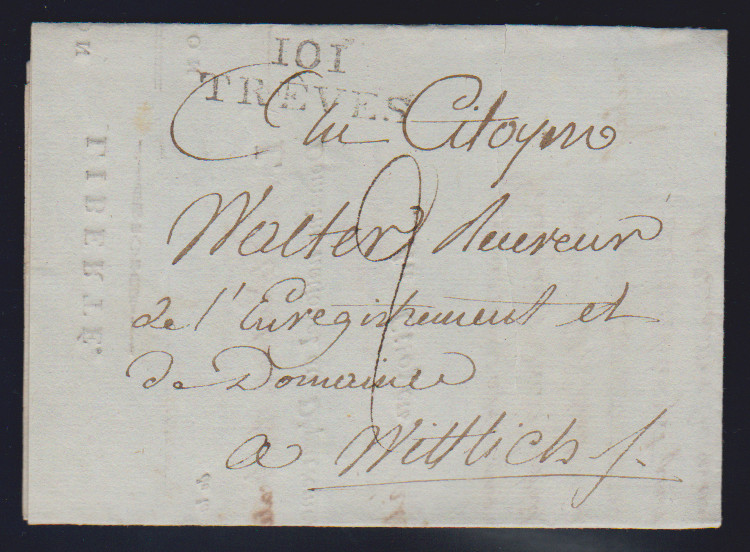 101
TRÈVES
Au Citoyen
Walter Receveur
de l'Enregistrement et
de Domaine
a Wittlich
LIBERTÉ.